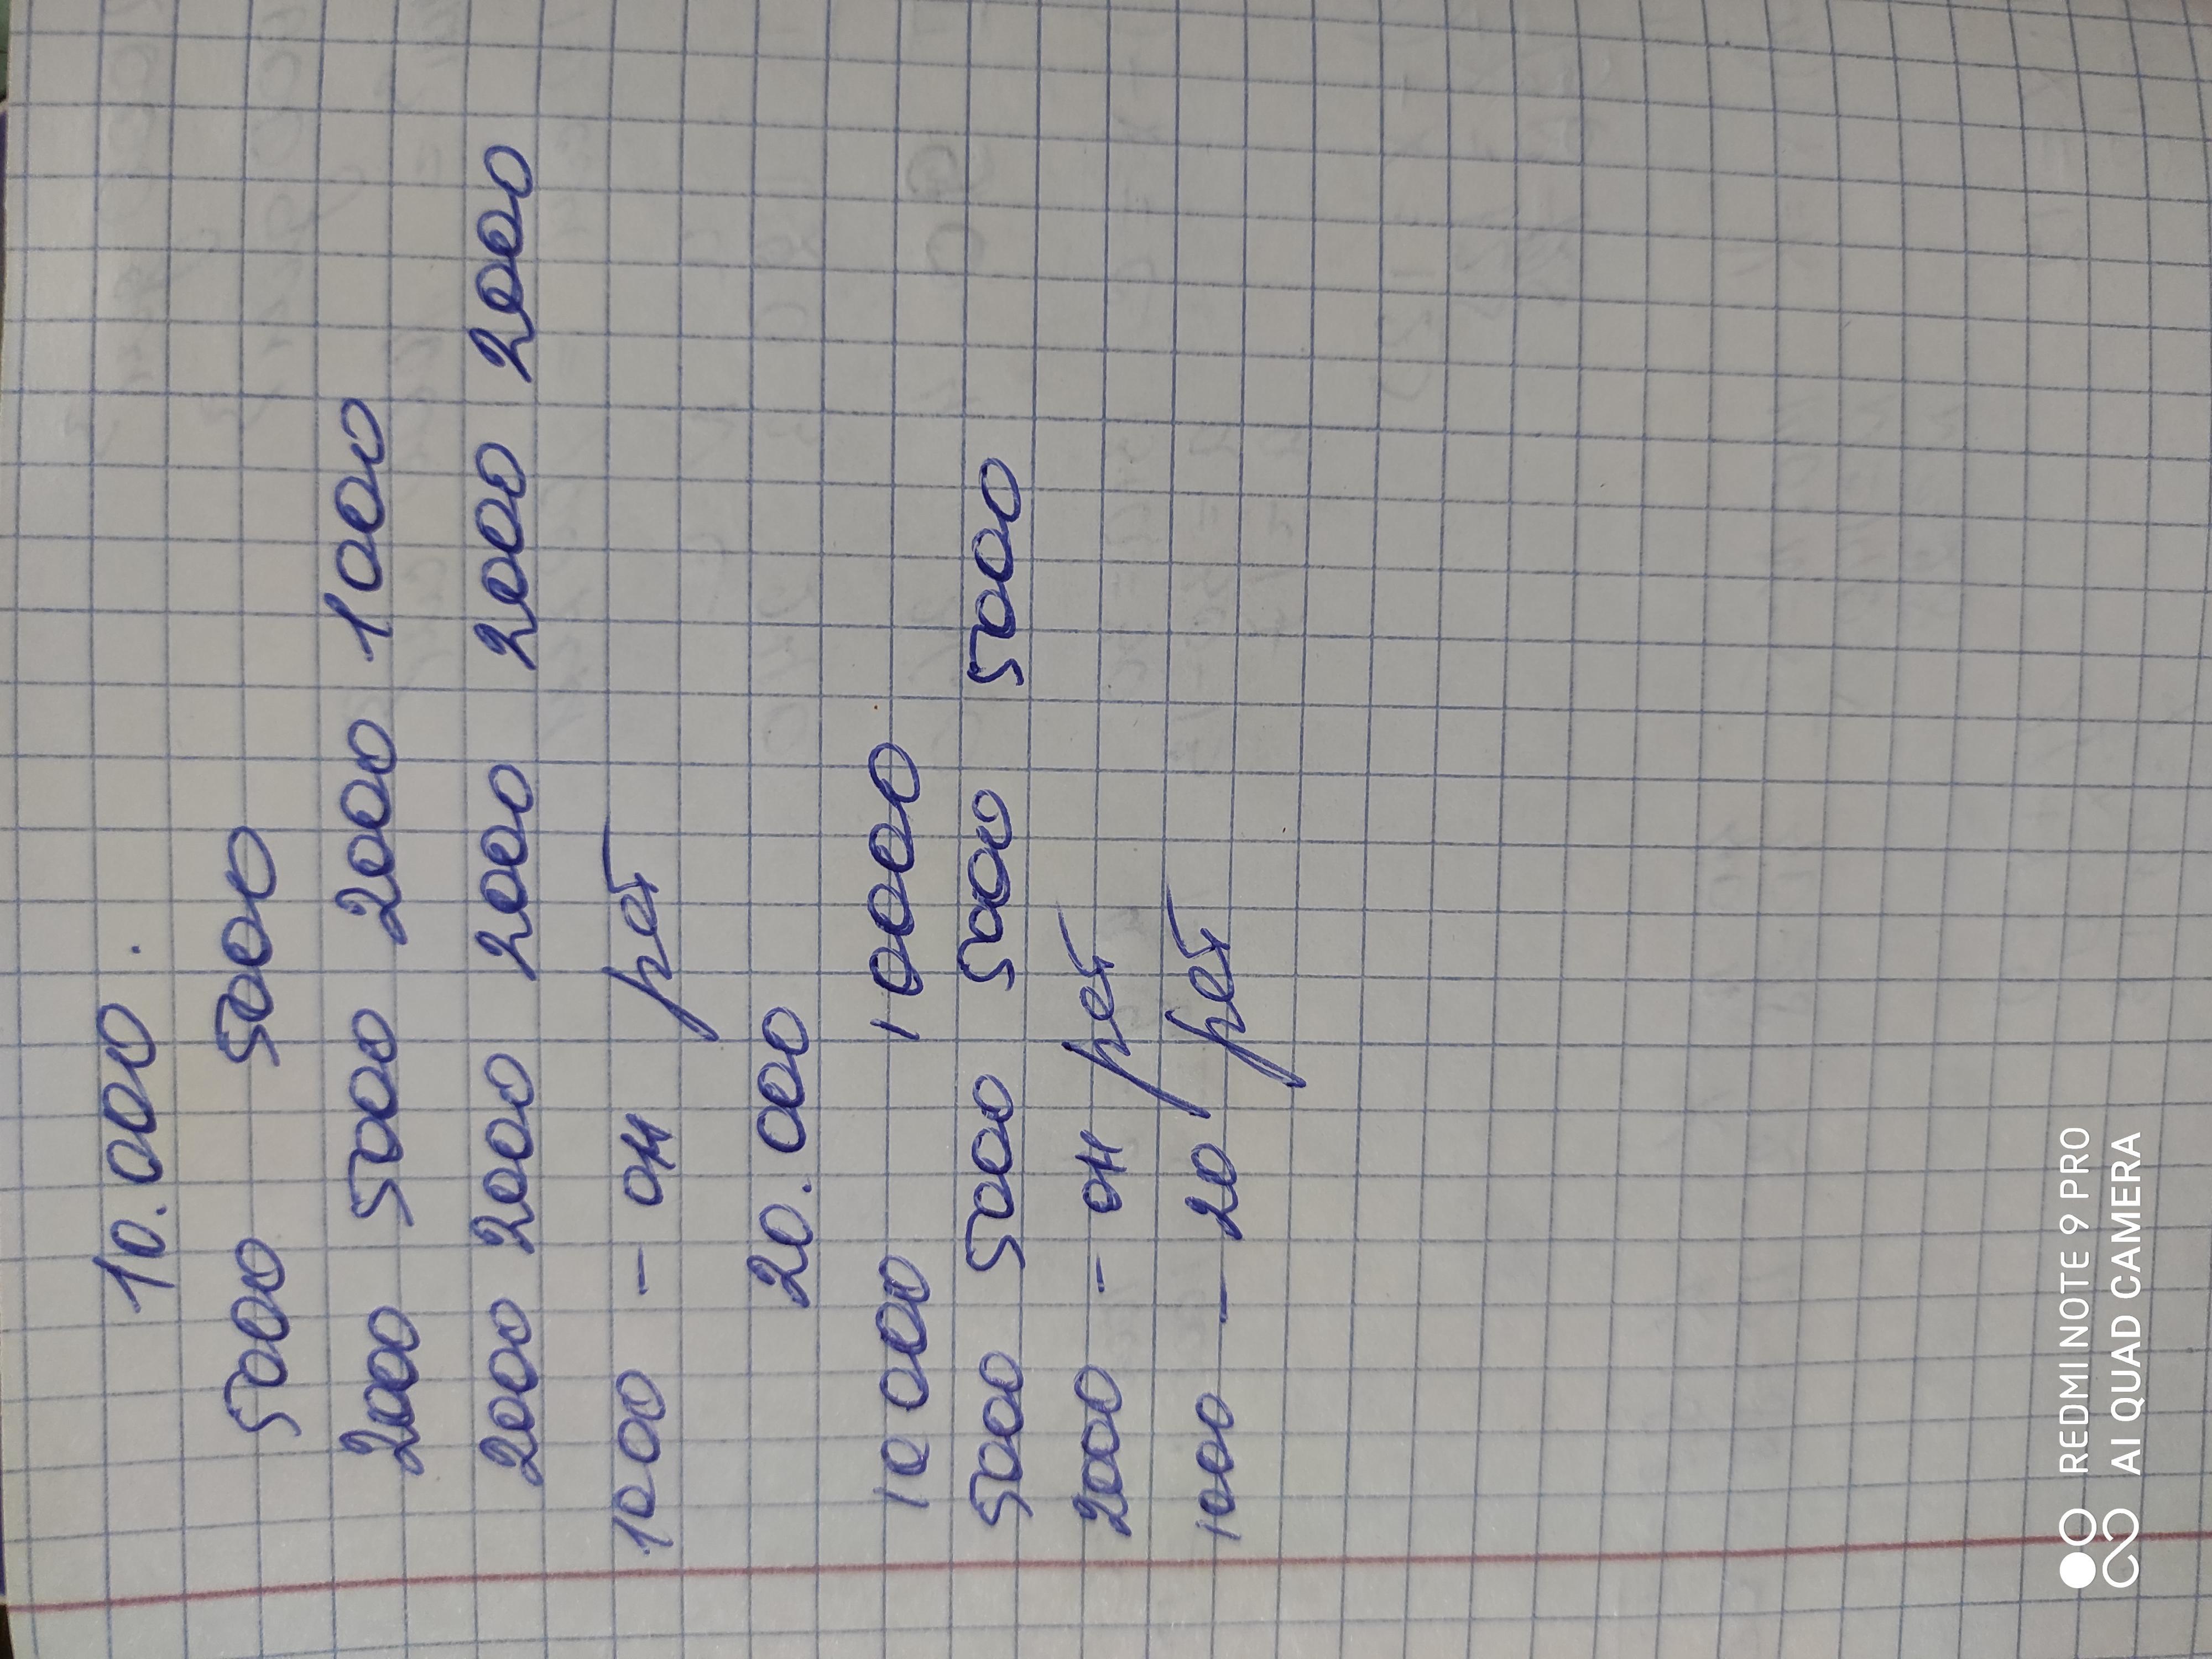 10.000.
5000 5000
2000 5000 2000 1000
2000 2000 2000 2000 2000
1000 – он рет
20.000
10000 10000
5000 5000 5000 5000
2000 – он рет
1000 – 20 рет
REDMI NOTE 9 PRO
AI QUAD CAMERA